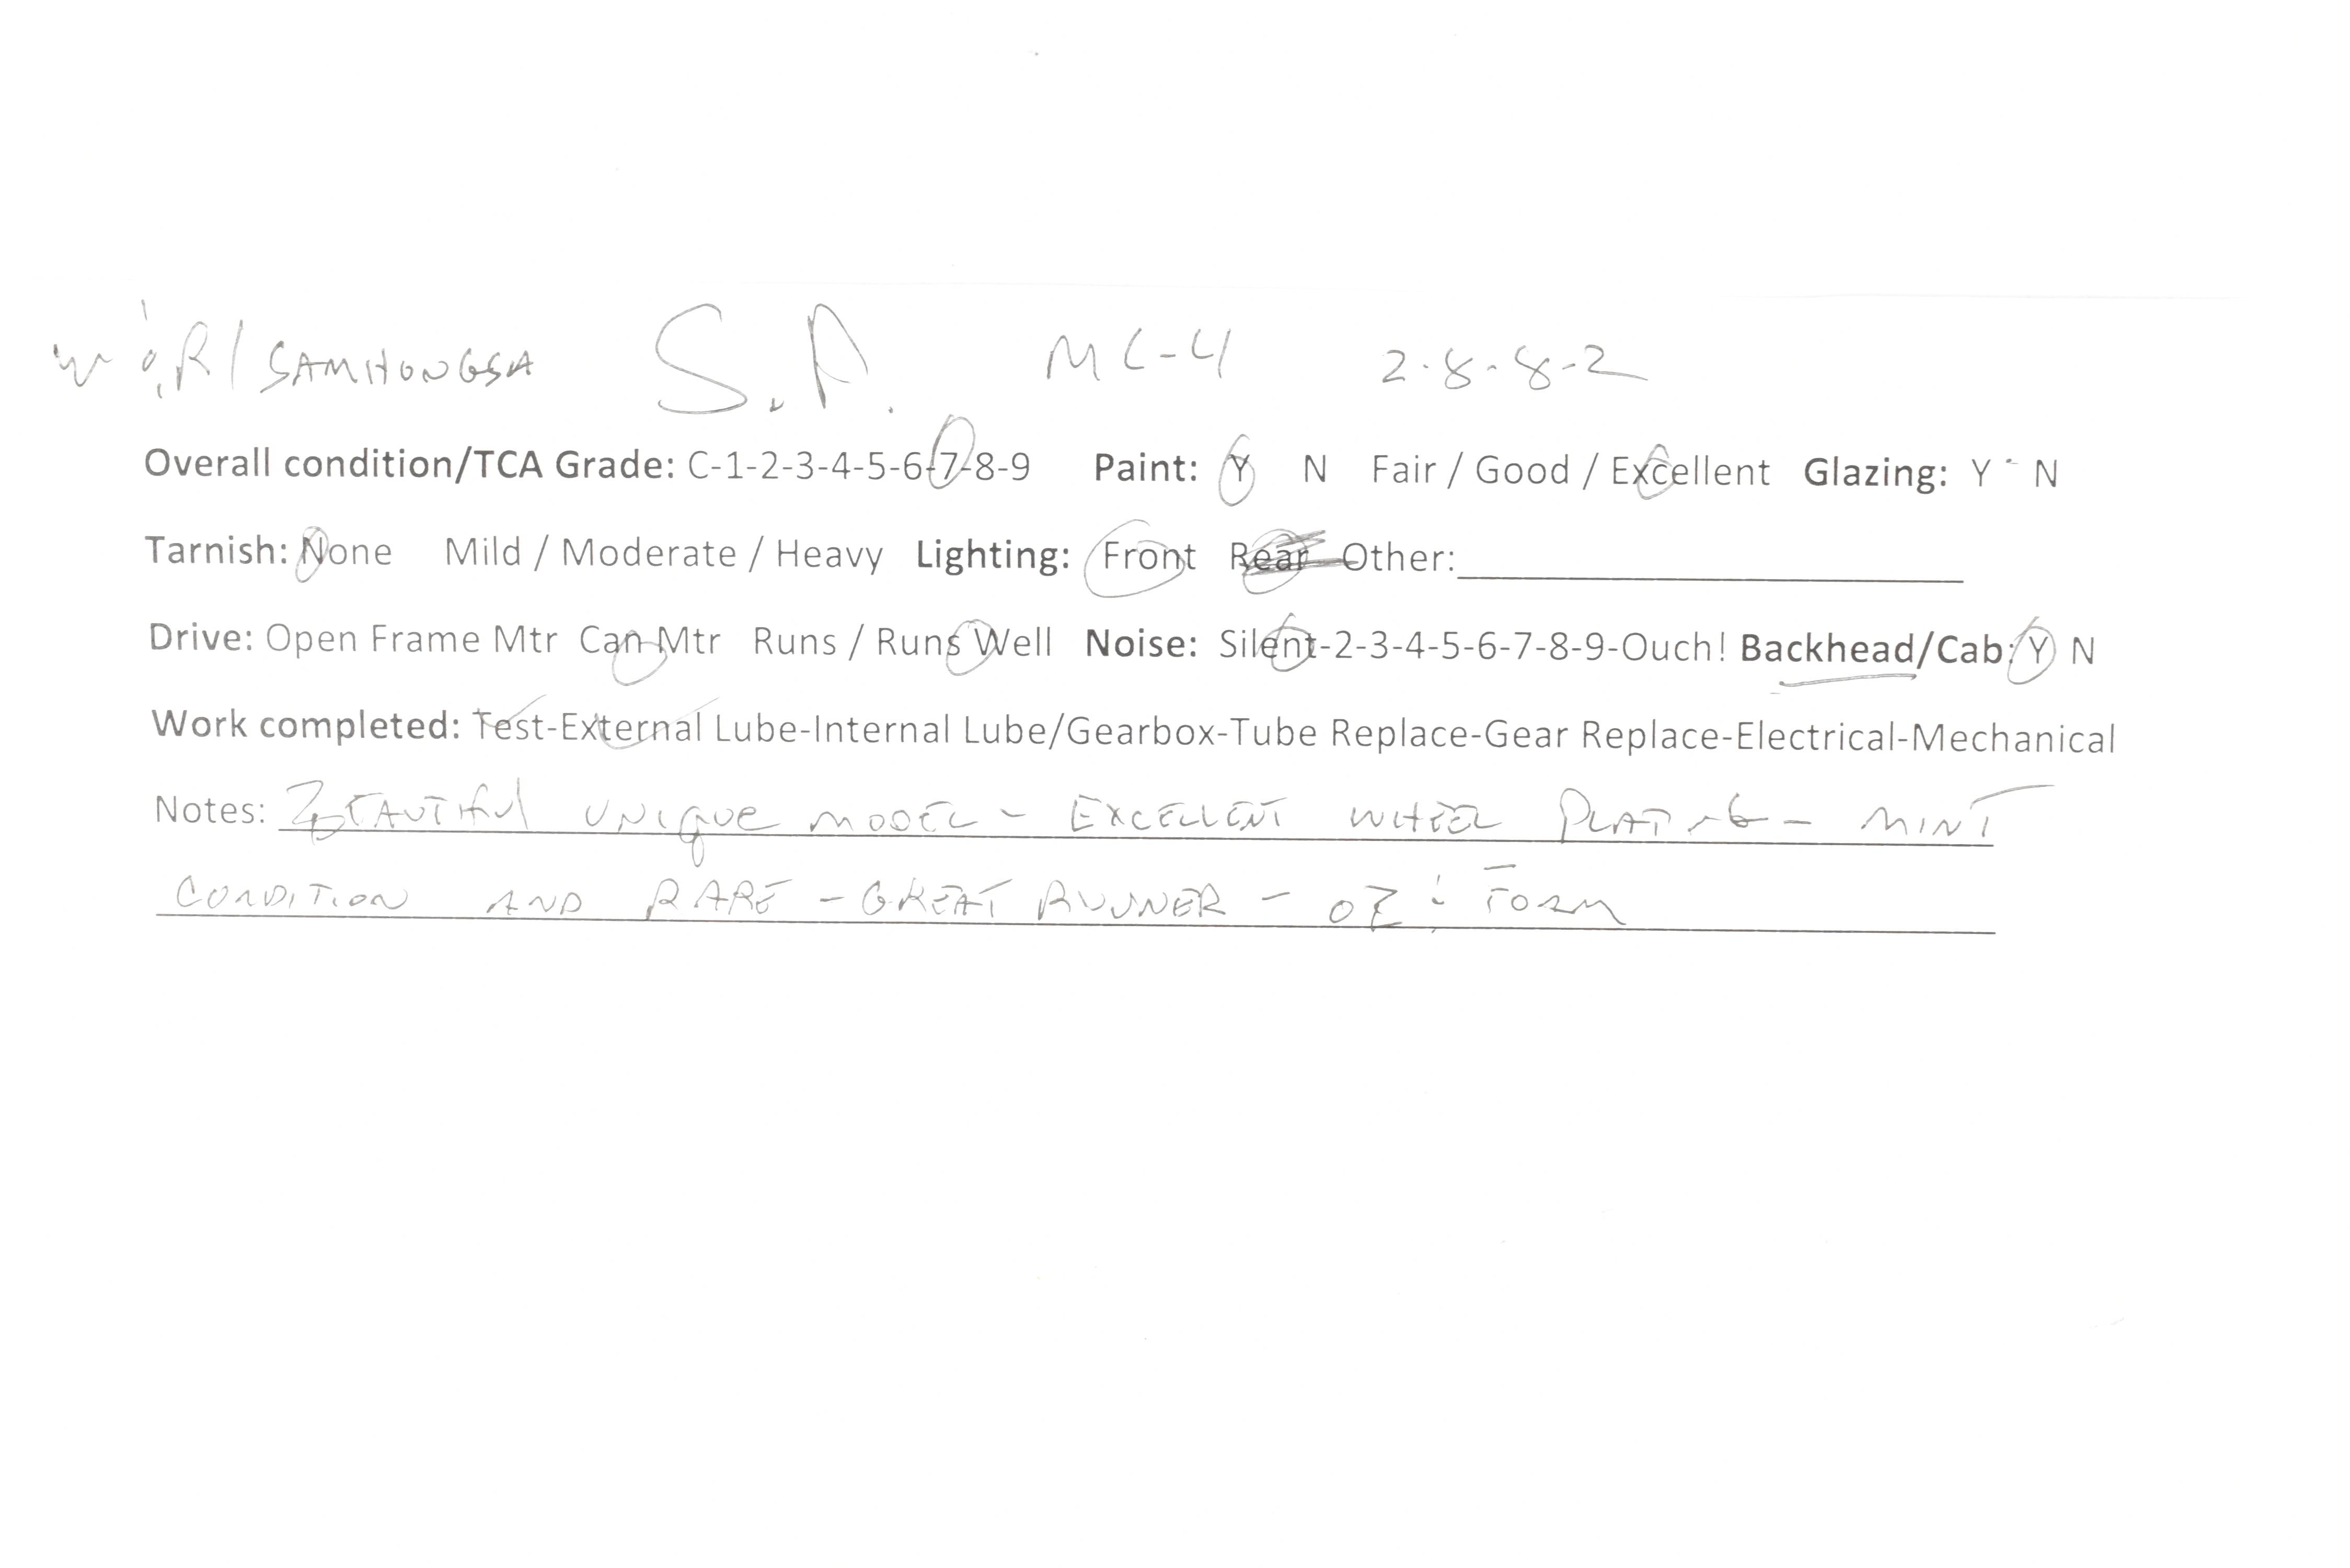 W&R/SAMHONGSA S.P. MC-4 2-8-8-2
Overall condition/TCA Grade: C-1-2-3-4-5-6-7-8-9 Paint: Y N Fair / Good / Excellent Glazing: Y - N
Tarnish: None Mild / Moderate / Heavy Lighting: Front Rear Other:
Drive: Open Frame Mtr Can Mtr Runs / Runs Well Noise: Silent-2-3-4-5-6-7-8-9-Ouch! Backhead/Cab: Y N
Work completed: Test-External Lube-Internal Lube/Gearbox-Tube Replace-Gear Replace-Electrical-Mechanical
Notes: BEAUTIFUL UNIQUE MODEL - EXCELLENT WHEEL PLATING - MINT
CONDITION AND RARE - GREAT RUNNER - FOAM